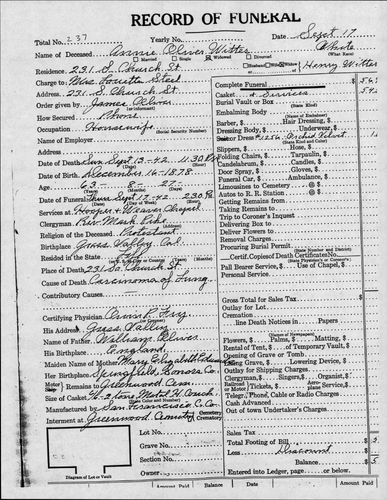 RECORD OF FUNERAL
Total No. 237 Yearly No. Date Sept 17
Name of Deceased Annie Oliver Witter White
(What Race)
Married Single Widowed Divorced Husband Wife Widow of Henry Witter
Residence 231 S. Church St
Charge to Mrs. Louette Steel
Address 231 S. Church St
Order given by James Oliver
How Secured Phone
Occupation Housewife
(Social Security Number)
Name of Employer
Address
Date of Death Sun Sept 13-42 11:30 P
Date of Birth December 16-1878
Age 63 - 8 - 27 -
(Years) (Months) (Days)
Date of Funeral Thurs Sept 17-42 2:30 P
Services at Hooper-Weaver Chapel
Clergyman Rev. Mark
Religion of the Deceased Protestant
Birthplace Grass Valley Cal
Resided in the State Life
Place of Death 231 So. Church St.
Cause of Death Carcinoma of Lung
Contributory Causes
Certifying Physician
His Address Grass Valley
Name of Father William Oliver
His Birthplace England
Maiden Name of Mother Mary Elizabeth
Her Birthplace Springfield, Sonora Co.
Motor Body Remains to Greenwood Cem
Size of Casket Couch
Manufactured by San Francisco C. Co.
Interment at Greenwood Cemetery Cemetery Crematory
Lot No.
Grave No.
Section No.
Owner
Diagram of Lot or Vault
Complete Funeral $
Casket & Services
Burial Vault or Box
(State Kind)
Embalming Body
Barber, $ Hair Dressing, $
Dressing Body, $ Underwear, $
Suit or Dress #1256 Orchid Velvet
(State Kind and Color)
Slippers, $ Hose, $
Folding Chairs, $ Tarpaulin, $
Candelabrum, $ Candles, $
Door Spray, $ Gloves, $
Funeral Car, $ Ambulance, $
Limousines to Cemetery @ $
Autos to R. R. Station @ $
Getting Remains from
Taking Remains to
Trip to Coroner's Inquest
Delivering Box to
Delivering Flowers to
Removal Charges
Procuring Burial Permit
(State Number and District)
Certif. Copies of Death Certificate No.
Pall Bearer Service, $ Use of Chapel, $
Personal Service
Gross Total for Sales Tax $
Outlay for Lot
Cremation
line Death Notices in Papers
(Name of Newspapers)
Flowers, $ Palms, $ Matting, $
Rental of Tent, $ of Temporary Vault, $
Opening of Grave or Tomb
Lining Grave, $ Lowering Device, $
Outlay for Shipping Charges
Clergyman, $ Singers, $ Organist, $
Railroad Tickets, $ Motor, $ Aeroplane Service, $
Telegr., Phone, Cable or Radio Charges
Cash Advanced
Out of town Undertaker's Charges
Sales Tax
Total Footing of Bill $
Less Discount
Balance $
Entered into Ledger, page or below.
Amount Paid Balance Date Amount Paid